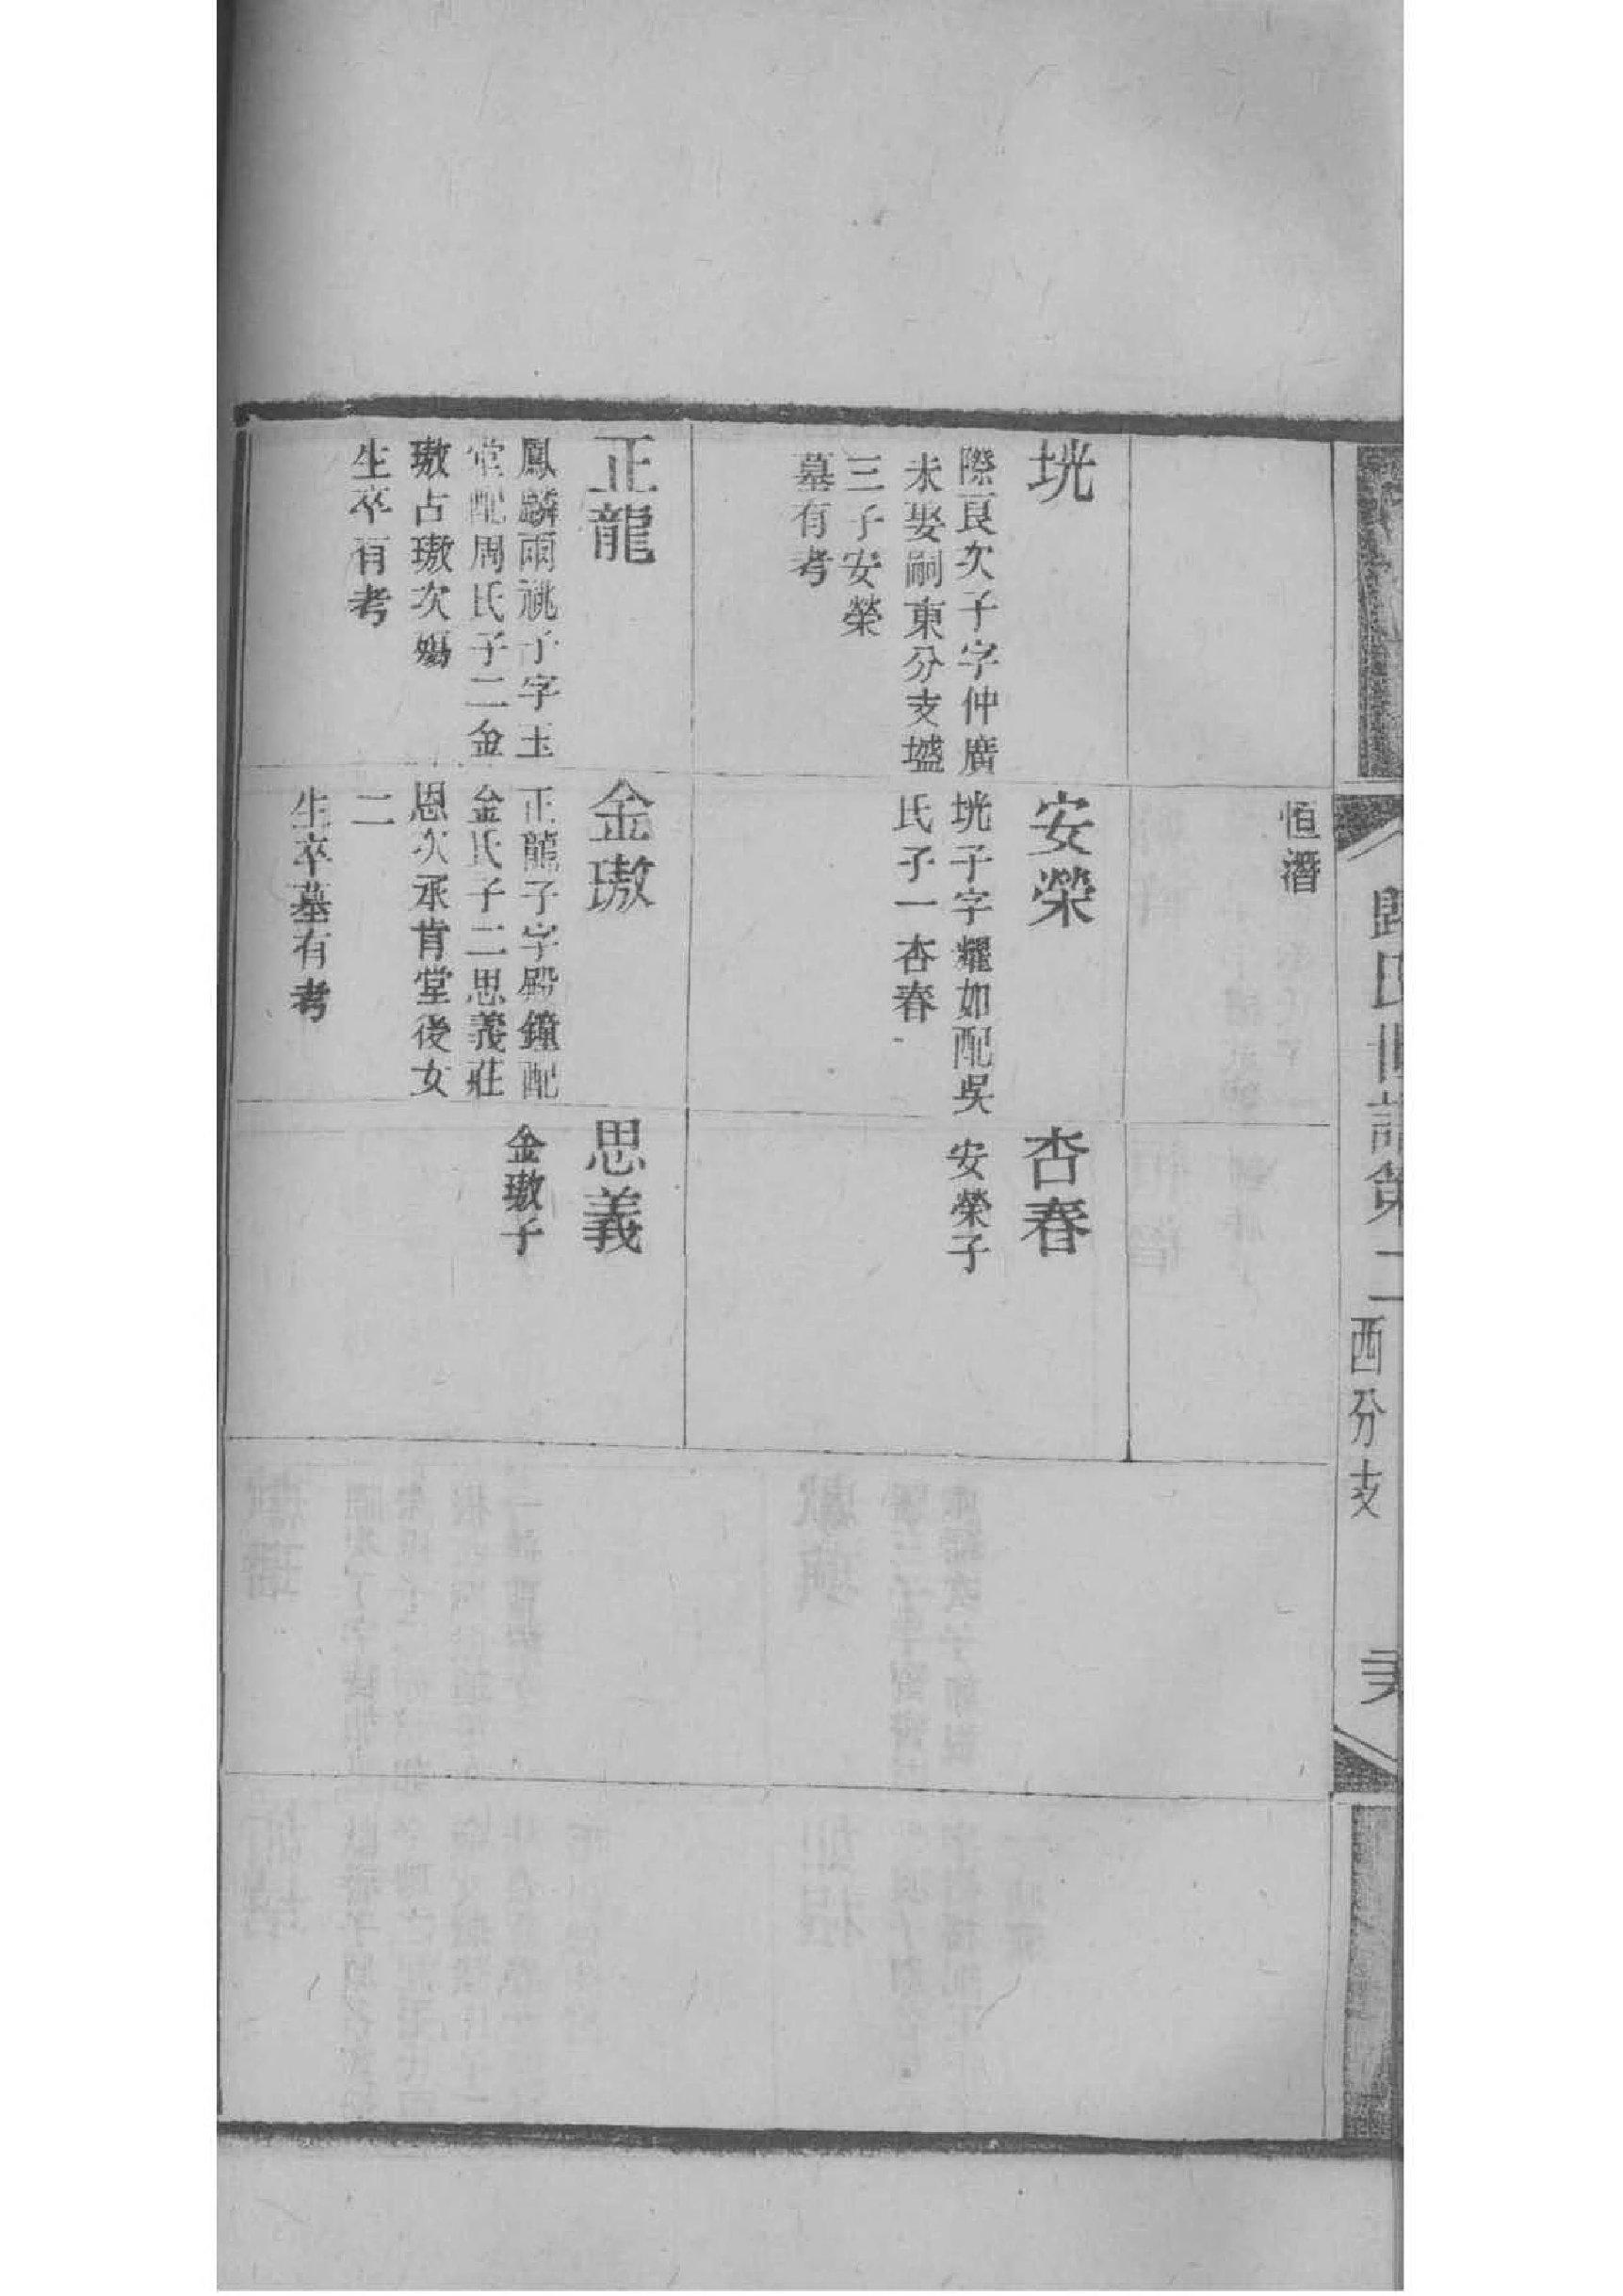 歸氏世譜第二
西分支
恒潛
垙
際良次子字仲廣
未娶嗣東分支壚
三子安榮
墓有考
安榮
垙子字耀如配吳
氏子一杏春
杏春
安榮子
正龍
鳳麟兩祧子字玉
堂配周氏子二金
璈占璈次殤
生卒有考
金璈
正龍子字殿鐘配
金氏子二思義莊
恩次承肯堂後女
二
生卒墓有考
思義
金璈子